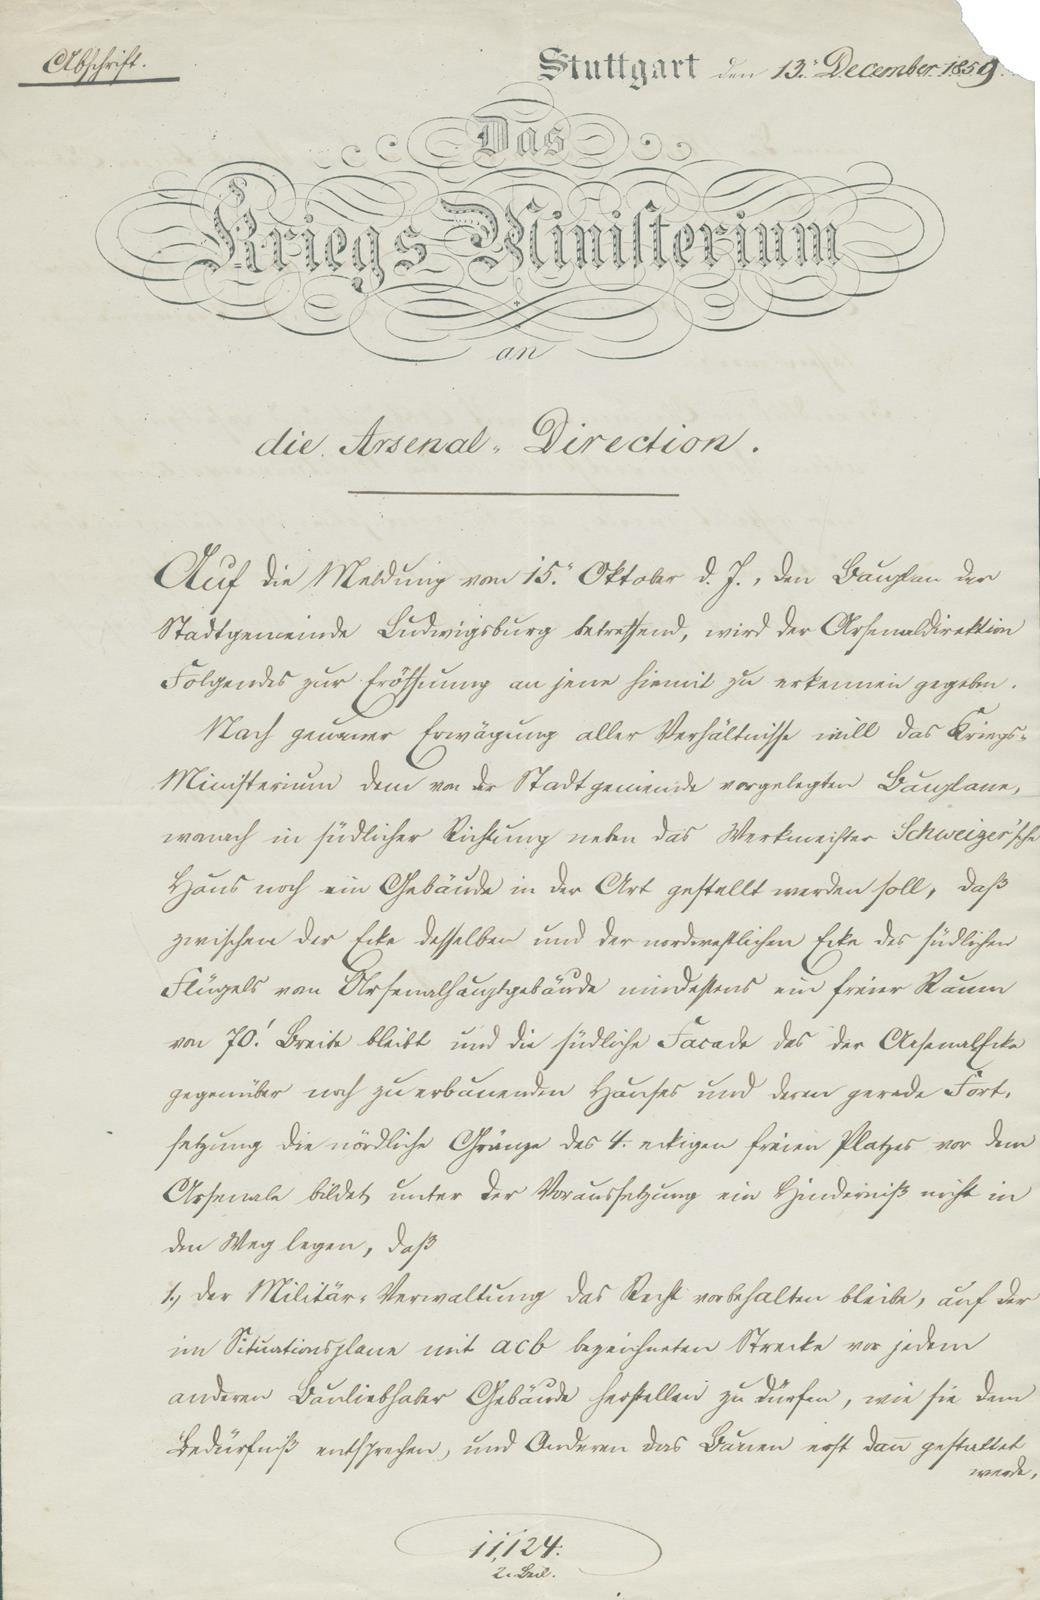 Abschrift.
Stuttgart den 13. December 1859.
Das
Kriegs Ministerium
an
die Arsenal-Direction.
Auf die Meldung vom 15. Oktober d. J., den Bauplan der
Stadtgemeinde Ludwigsburg betreffend, wird der Arsenaldirektion
Folgendes zur Eröffnung an jene hiemit zu erkennen gegeben.
Nach genauer Erwägung aller Verhältnisse will das Kriegs-
Ministerium dem von der Stadtgemeinde vorgelegten Bauplane,
wonach in südlicher Richtung neben das Werkmeister Schweizer'sche
Haus noch ein Gebäude in der Art gestellt werden soll, daß
zwischen der Ecke desselben und der nordwestlichen Ecke des südlichen
Flügels vom Arsenalhauptgebäude mindestens ein freier Raum
von 70.' Breite bleibt und die südliche Facade des der Arsenalecke
gegenüber noch zu erbauenden Hauses und deren gerade Fort-
setzung die nördliche Gränze des 4. eckigen freien Platzes vor dem
Arsenale bildet, unter der Voraussetzung ein Hinderniß nicht in
den Weg legen, daß
1., der Militär-Verwaltung das Recht vorbehalten bleibe, auf der
im Situationsplane mit acb bezeichneten Strecke vor jedem
anderen Bauliebhaber Gebäude herstellen zu dürfen, wie sie dem
Bedürfniß entsprechen, und Anderen das Bauen erst dann gestattet
werde,
11,124.
2. Beil.